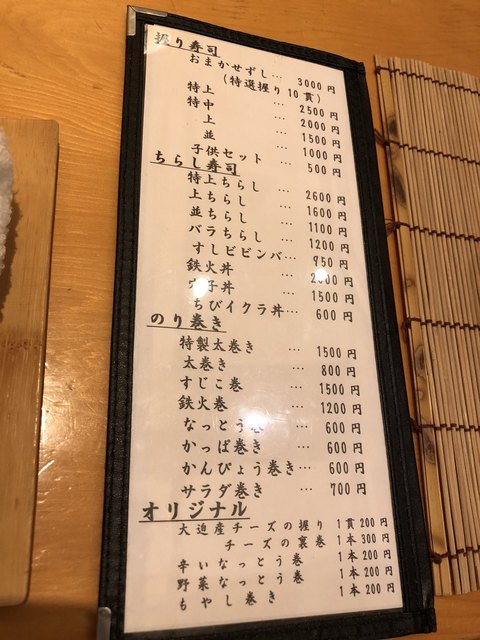 握り寿司
おまかせずし… 3000円
(特選握り10貫)
特上 … 2500円
特中 … 2000円
上 … 1500円
並 … 1000円
子供セット … 500円
ちらし寿司
特上ちらし … 2600円
上ちらし … 1600円
並ちらし … 1100円
バラちらし … 1200円
すしビビンバ… 950円
鉄火丼 … 2000円
穴子丼 … 1500円
ちびイクラ丼… 600円
のり巻き
特製太巻き 1500円
太巻き … 800円
すじこ巻 … 1500円
鉄火巻 … 1200円
なっとう巻 … 600円
かっぱ巻き … 600円
かんぴょう巻き… 600円
サラダ巻き … 700円
オリジナル
大迫産チーズの握り 1貫200円
チーズの裏巻 1本300円
辛いなっとう巻 1本200円
野菜なっとう巻 1本200円
もやし巻き 1本200円